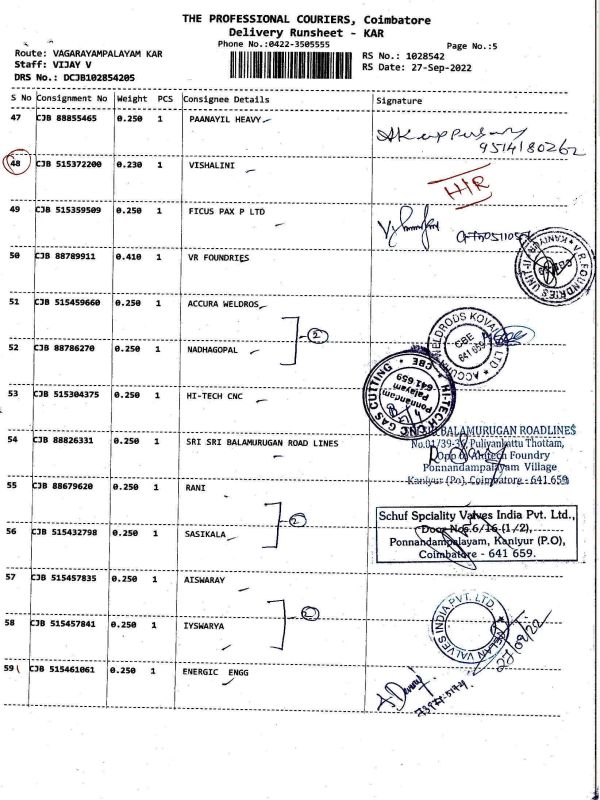 THE PROFESSIONAL COURIERS, Coimbatore
Delivery Runsheet - KAR
Phone No.:0422-3505555
Page No.:5
Route: VAGARAYAMPALAYAM KAR
Staff: VIJAY V
DRS No.: DCJB102854205
RS No.: 1028542
RS Date: 27-Sep-2022
S No Consignment No Weight PCS Consignee Details Signature
47 CJB 88855465 0.250 1 PAANAYIL HEAVY
9514180262
48 CJB 515372200 0.230 1 VISHALINI
49 CJB 515359509 0.250 1 FICUS PAX P LTD
50 CJB 88789911 0.410 1 VR FOUNDRIES
V.R.FOUNDRIES UNIT-II KANIYUR
51 CJB 515459660 0.250 1 ACCURA WELDROS
2
WELDRODS KOVAI LTD ACCU
CBE
641 659
52 CJB 88786270 0.250 1 NADHAGOPAL
53 CJB 515304375 0.250 1 HI-TECH CNC
HI-TECH CNC GAS CUTTING CBE
Ponnandam
Palayam
641 659
54 CJB 88826331 0.250 1 SRI SRI BALAMURUGAN ROAD LINES
BALAMURUGAN ROADLINES
Puliyankattu Thottam,
Foundry
Ponnandampalayam Village
Kaniyur (Po) Coimbatore - 641 659
55 CJB 88679620 0.250 1 RANI
2
Schuf Spciality Valves India Pvt. Ltd.,
Door Nos.6/16 (1/2),
Ponnandampalayam, Kaniyur (P.O),
Coimbatore - 641 659.
56 CJB 515432798 0.250 1 SASIKALA
57 CJB 515457835 0.250 1 AISWARAY
58 CJB 515457841 0.250 1 IYSWARYA
VALVES INDIA PVT. LTD.
27/09/22
59 CJB 515461061 0.250 1 ENERGIC ENGG